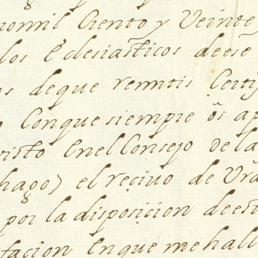 nomil Ciento y Veinte
los Eclesiasticos deese
os deque remitis Certi
Conque siempre os ap
risto Enel Consejo de la
hago) el reciuo de Vra
por la disposicion deest
tacion En que me hall